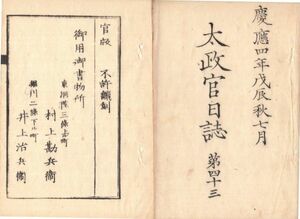 慶應四年戊辰秋七月
太政官日誌 第四十三
官版 不許飜刻
御用御書物所
東洞院三條上ル町
村上勘兵衞
堀川二條下ル町
井上治兵衞